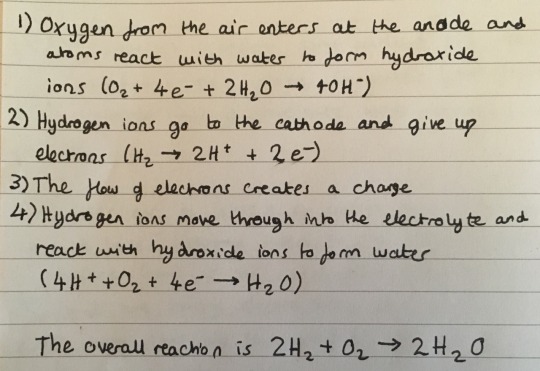 1) Oxygen from the air enters at the anode and
atoms react with water to form hydroxide
ions (O₂ + 4e⁻ + 2H₂O → 4OH⁻)
2) Hydrogen ions go to the cathode and give up
electrons (H₂ → 2H⁺ + 2e⁻)
3) The flow of electrons creates a charge
4) Hydrogen ions move through into the electrolyte and
react with hydroxide ions to form water
(4H⁺ + O₂ + 4e⁻ → H₂O)
The overall reaction is 2H₂ + O₂ → 2H₂O